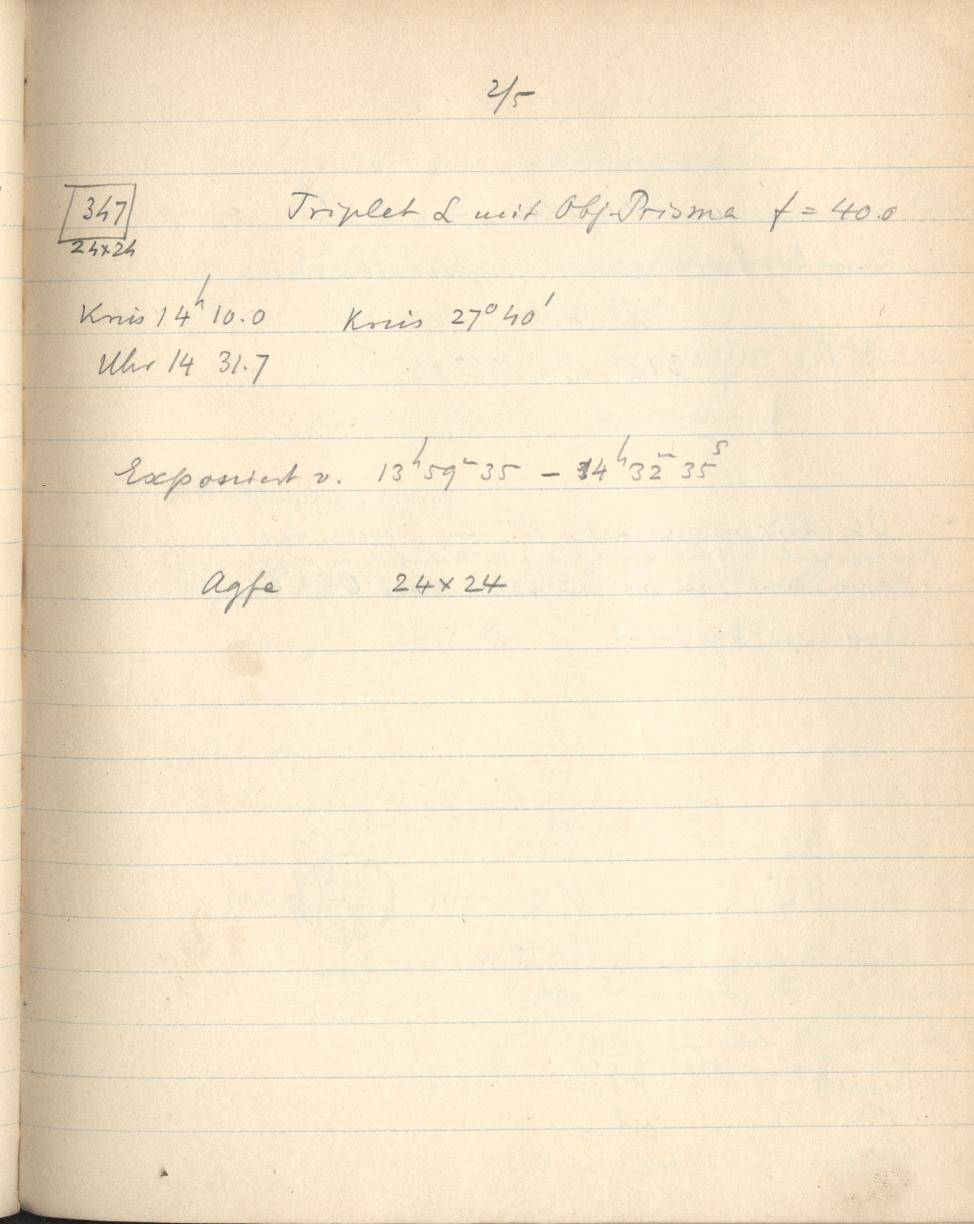 2/5
347 Triplet L mit Obj.-Prisma f = 40.0
24×24
Kreis 14ʰ 10.0 Kreis 27° 40'
Uhr 14 31.7
Exponiert v. 13ʰ 59ᵐ 35 – 14ʰ 32ᵐ 35ˢ
Agfa 24×24